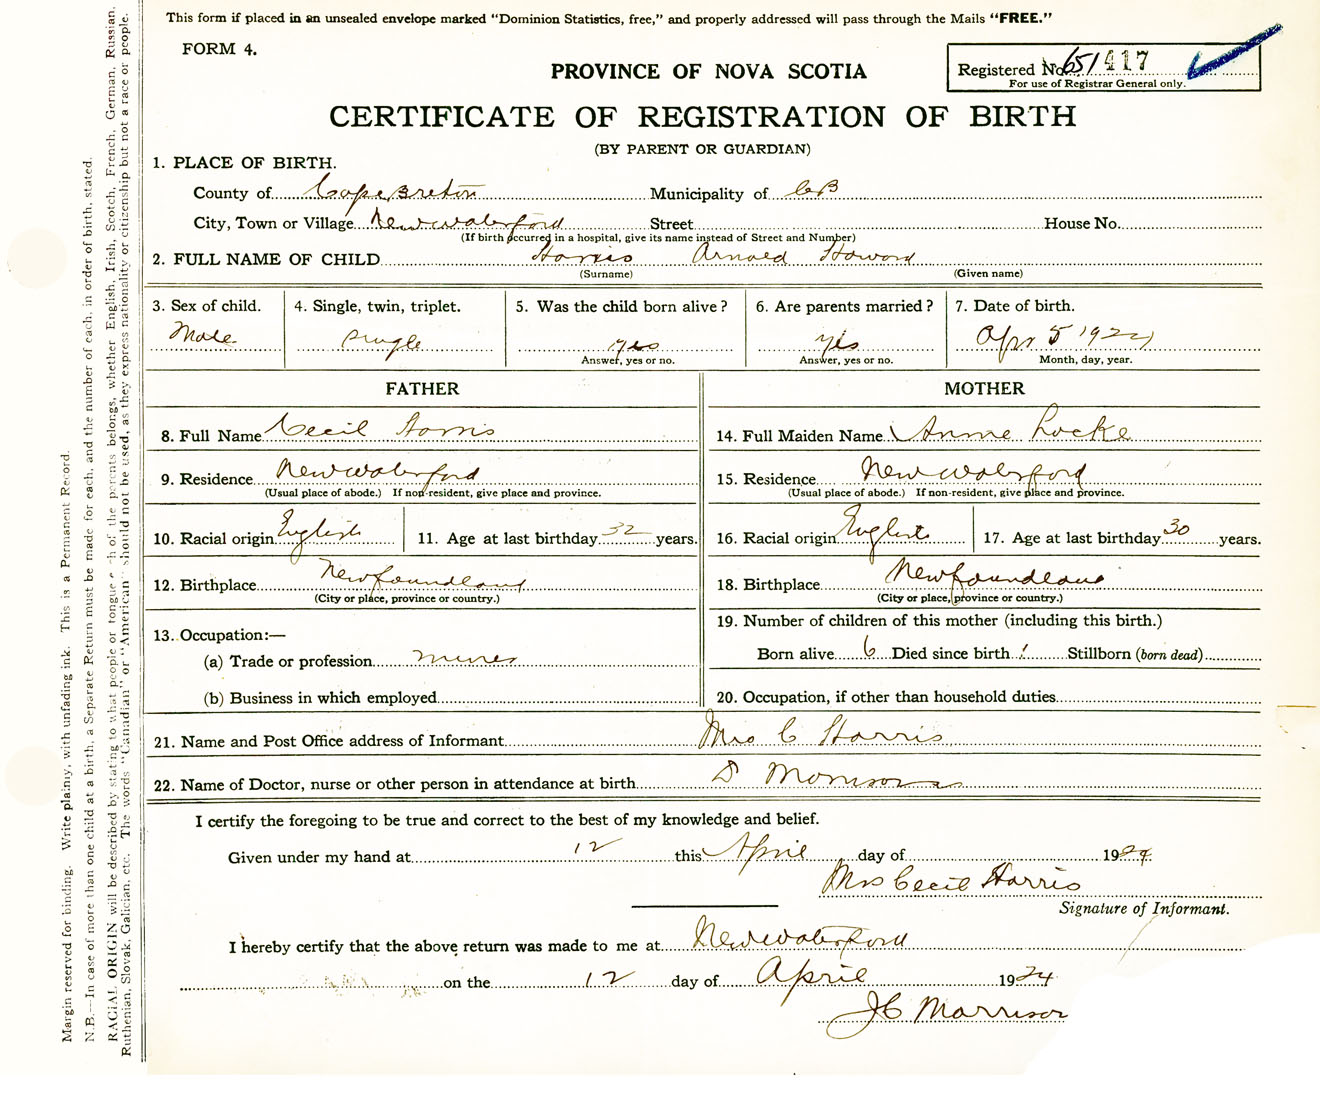 This form if placed in an unsealed envelope marked "Dominion Statistics, free," and properly addressed will pass through the Mails "FREE."
FORM 4.
Registered No. 651417
For use of Registrar General only.
PROVINCE OF NOVA SCOTIA
CERTIFICATE OF REGISTRATION OF BIRTH
(BY PARENT OR GUARDIAN)
1. PLACE OF BIRTH.
County of Cape Breton Municipality of CB
City, Town or Village New Waterford Street House No.
(If birth occurred in a hospital, give its name instead of Street and Number)
2. FULL NAME OF CHILD Harris Arnold Howard
(Surname) (Given name)
3. Sex of child. 4. Single, twin, triplet. 5. Was the child born alive? 6. Are parents married? 7. Date of birth.
Male single yes yes Apr 5 1924
Answer, yes or no. Answer, yes or no. Month, day, year.
FATHER MOTHER
8. Full Name Cecil Harris 14. Full Maiden Name Annie Locke
9. Residence New Waterford 15. Residence New Waterford
(Usual place of abode.) If non-resident, give place and province. (Usual place of abode.) If non-resident, give place and province.
10. Racial origin English 11. Age at last birthday 32 years. 16. Racial origin English 17. Age at last birthday 30 years.
12. Birthplace Newfoundland 18. Birthplace Newfoundland
(City or place, province or country.) (City or place, province or country.)
13. Occupation:— 19. Number of children of this mother (including this birth.)
(a) Trade or profession miner Born alive 6 Died since birth 1 Stillborn (born dead)
(b) Business in which employed 20. Occupation, if other than household duties
21. Name and Post Office address of Informant Mrs C Harris
22. Name of Doctor, nurse or other person in attendance at birth D Morrison
I certify the foregoing to be true and correct to the best of my knowledge and belief.
Given under my hand at 12 this April day of 1924
Mrs Cecil Harris
Signature of Informant.
I hereby certify that the above return was made to me at New Waterford
on the 12 day of April 1924
JC Morrison
Margin reserved for binding. Write plainly, with unfading ink. This is a Permanent Record.
N.B.—In case of more than one child at a birth, a Separate Return must be made for each, and the number of each, in order of birth, stated.
RACIAL ORIGIN will be described by stating to what people or tongue each of the parents belongs, whether English, Irish, Scotch, French, German, Russian,
Ruthenian, Slovak, Galician, etc. The words "Canadian" or "American" should not be used, as they express nationality or citizenship but not a race or people.